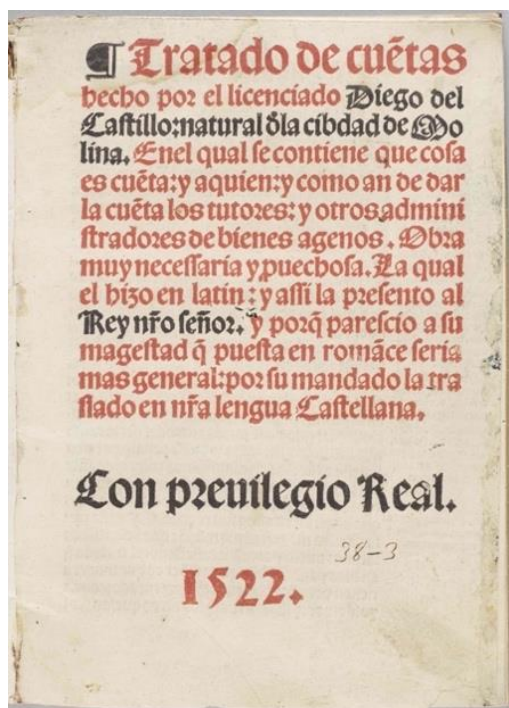 ¶ Tratado de cuẽtas
hecho por el licenciado Diego del
Castillo:natural d̃la cibdad de Mo
lina. Enel qual se contiene que cosa
es cuẽta:y aquien:y como an de dar
la cuẽta los tutores: y otros admini
stradores de bienes agenos. Obra
muy necessaria y ꝓuechosa. La qual
el hizo en latin : y assi la presento al
Rey nr̃o señor. y porq̃ parescio a su
magestad q̃ puesta en romãce seria
mas general:por su mandado la tra
slado en nr̃a lengua Castellana.
Con preuilegio Real.
38-3
1522.